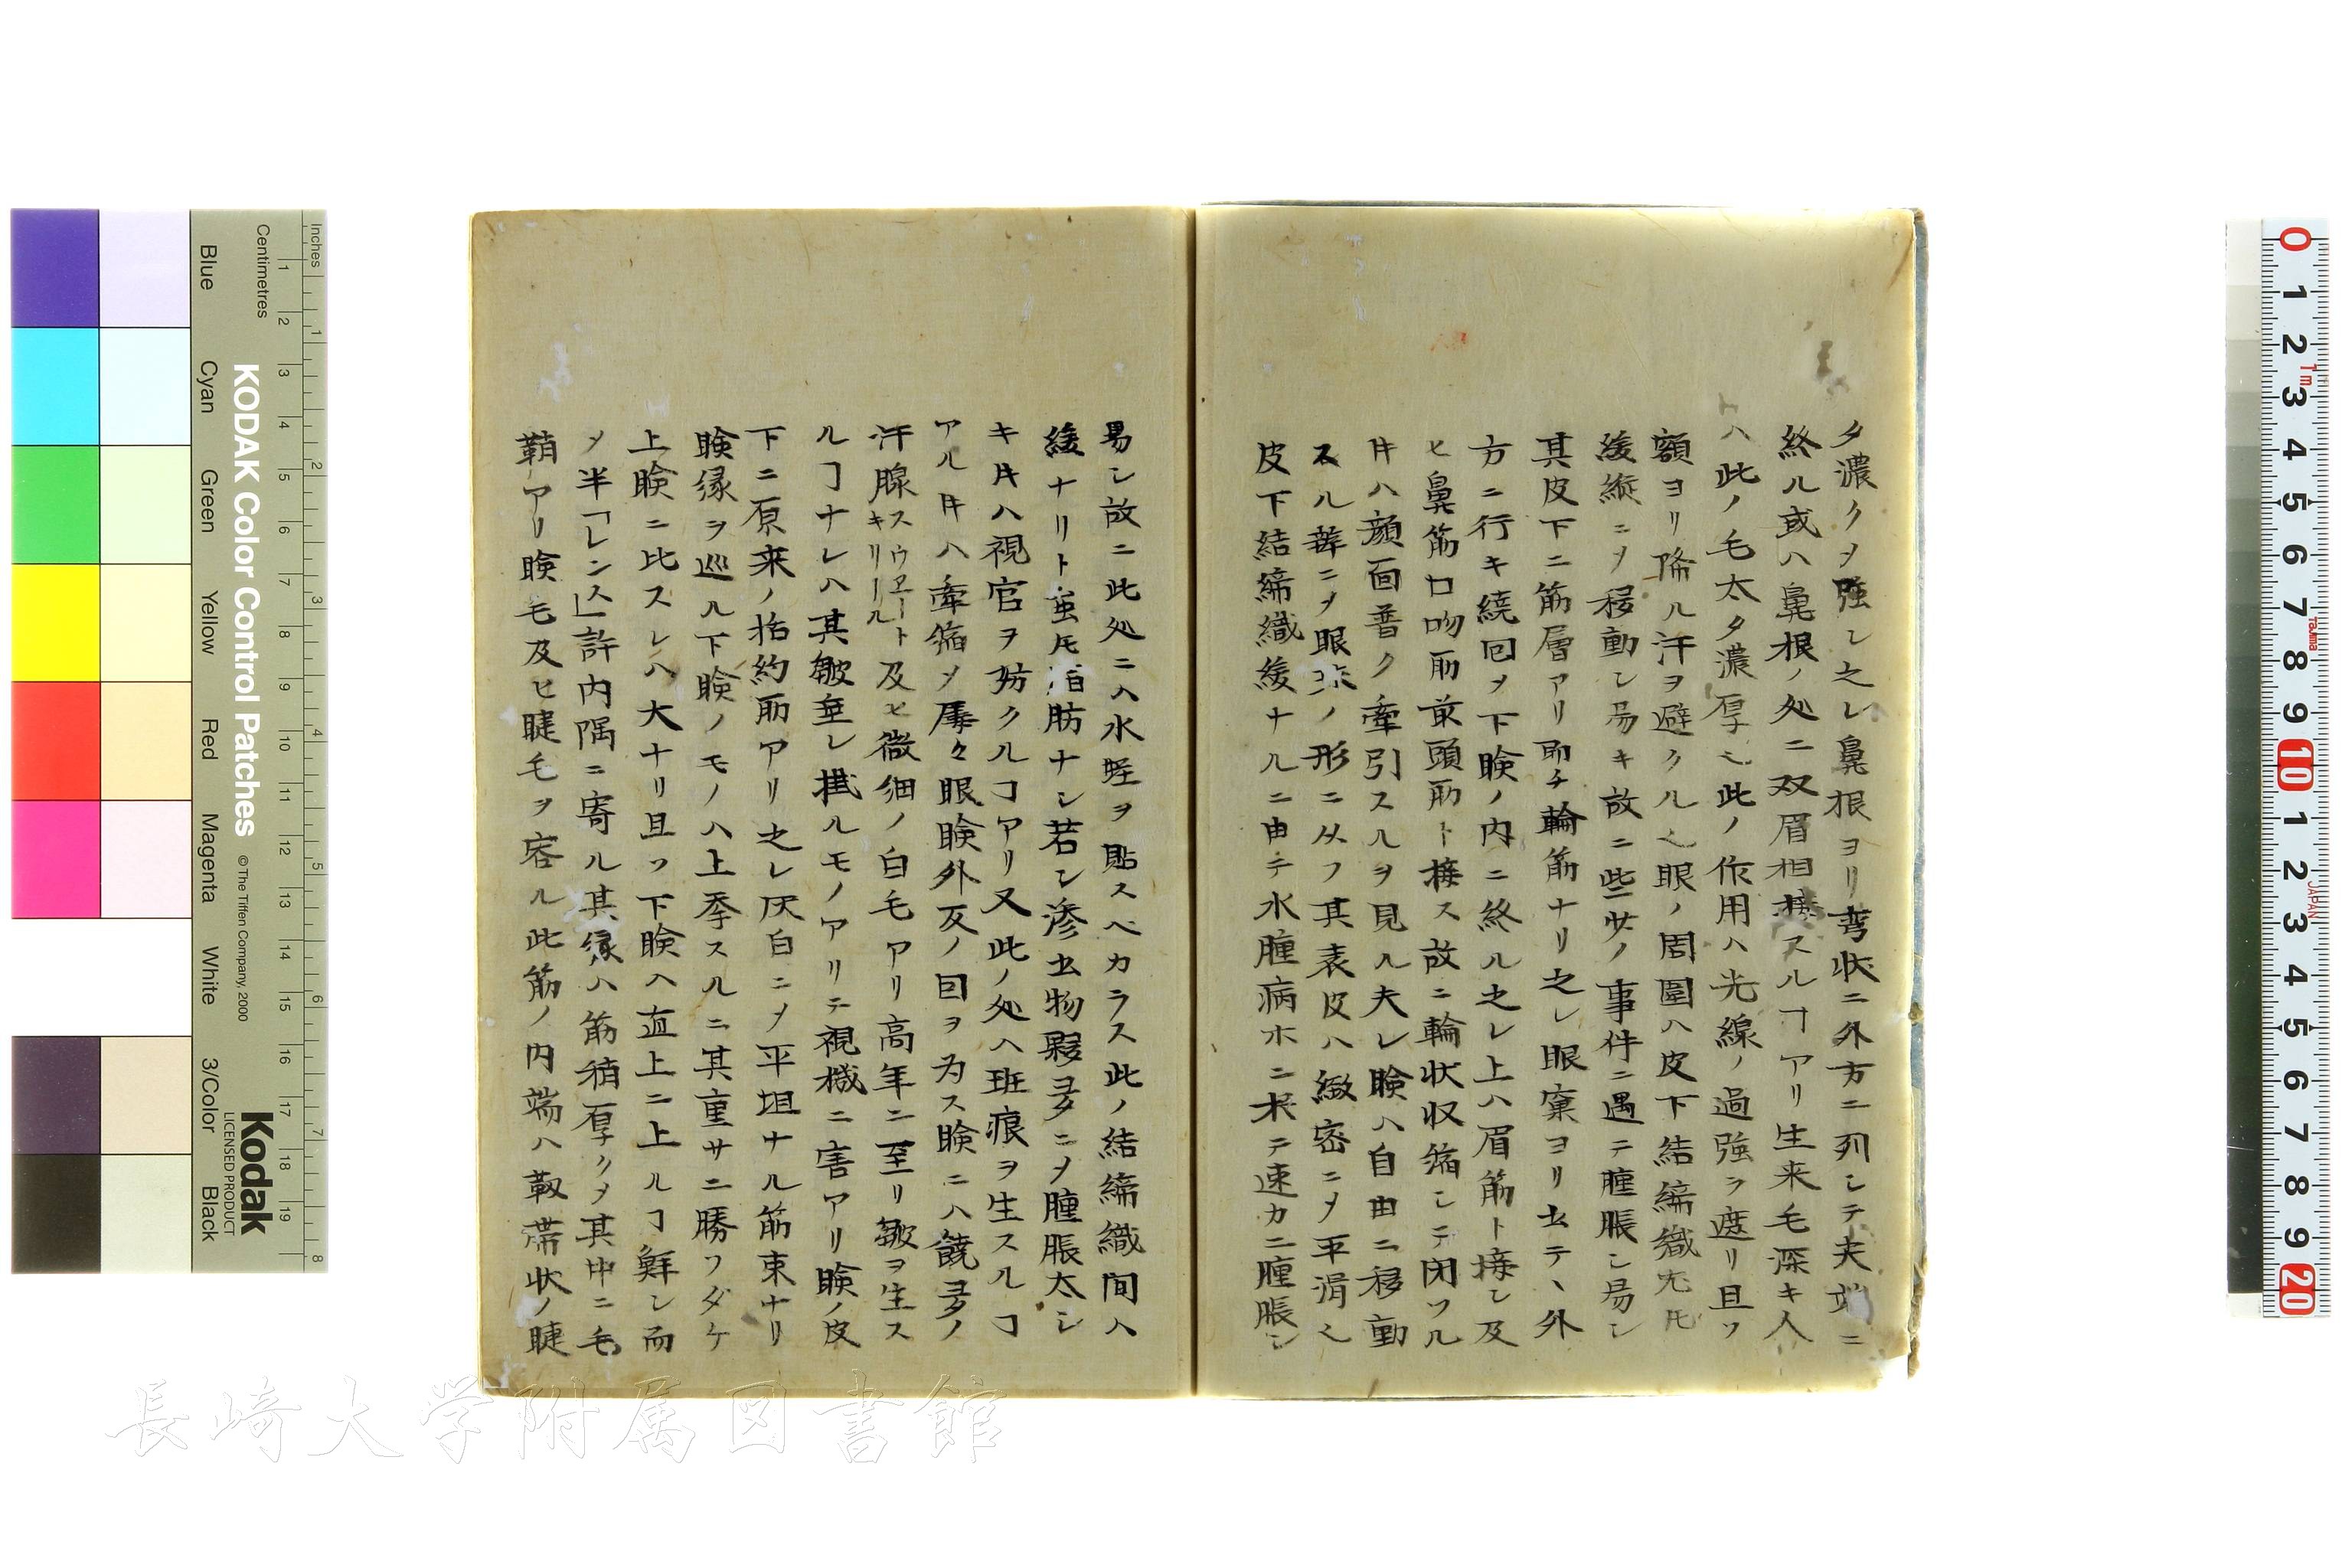 タ濃クヲ強シ之レ鼻根ヨリ弯状ニ外方ニ列シテ夫端ニ
終ル或ハ鼻根ノ処ニ双眉相接スルヿアリ生来毛深キ人
ハ此ノ毛太タ濃厚也此ノ作用ハ光線ノ過強ヲ遮リ且ツ
額ヨリ降ル汗ヲ避クル也眼ノ周囲ハ皮下結締織尤モ
緩縦ニメ移動シ易キ故ニ些少ノ事件ニ遇テ腫脹シ易シ
其皮下ニ筋層アリ即チ輪筋ナリ之レ眼窠ヨリ出テ、外
方ニ行キ繞回メ下瞼ノ内ニ終ル之レ上ハ眉筋ト接シ及
ヒ鼻筋口吻筋前頭筋ト接ス故ニ輪状収縮シテ閉ツル
キハ顔面普ク牽引スルヲ見ル夫レ瞼ハ自由ニ移動
スル弊ニメ眼球ノ形ニ从フ其表皮ハ緻密ニメ平滑也
皮下結締織緩ナルニ由テ水腫病ホニ於テ速カニ腫脹シ
易シ故ニ此処ニハ水蛭ヲ貼スベカラス此ノ結締織間ハ
緩ナリト虽モ脂肪ナシ若シ滲出物夥多ニメ腫脹太シ
キキハ視官ヲ妨クルヿアリ又此ノ処ハ班痕ヲ生スルヿ
アルキハ牽縮メ屡々眼瞼外反ノ因ヲ為ス瞼ニハ饒多ノ
汗腺スウヱートキリール及ヒ微細ノ白毛アリ高年ニ至リ皺ヲ生ス
ルヿナレハ其皺垂レ掛ルモノアリテ視機ニ害アリ瞼ノ皮
下ニ原来ノ括約筋アリ之レ灰白ニメ平坦ナル筋束ナリ
瞼縁ヲ巡ル下瞼ノモノハ上季スルニ其重サニ勝フダケ
上瞼ニ比スレハ大ナリ且ツ下瞼ハ直上ニ上ルヿ鮮シ而
メ半「レンス」許内隅ニ寄ル其縁ハ筋稍厚クメ其中ニ毛
鞘アリ瞼毛及ヒ睫毛ヲ容ル此筋ノ内端ハ靱帯状ノ睫
長崎大学附属図書館
KODAK Color Control Patches
© The Tiffen Company, 2000
Kodak
LICENSED PRODUCT
Inches
Centimetres
Blue
Cyan
Green
Yellow
Red
Magenta
White
3/Color
Black